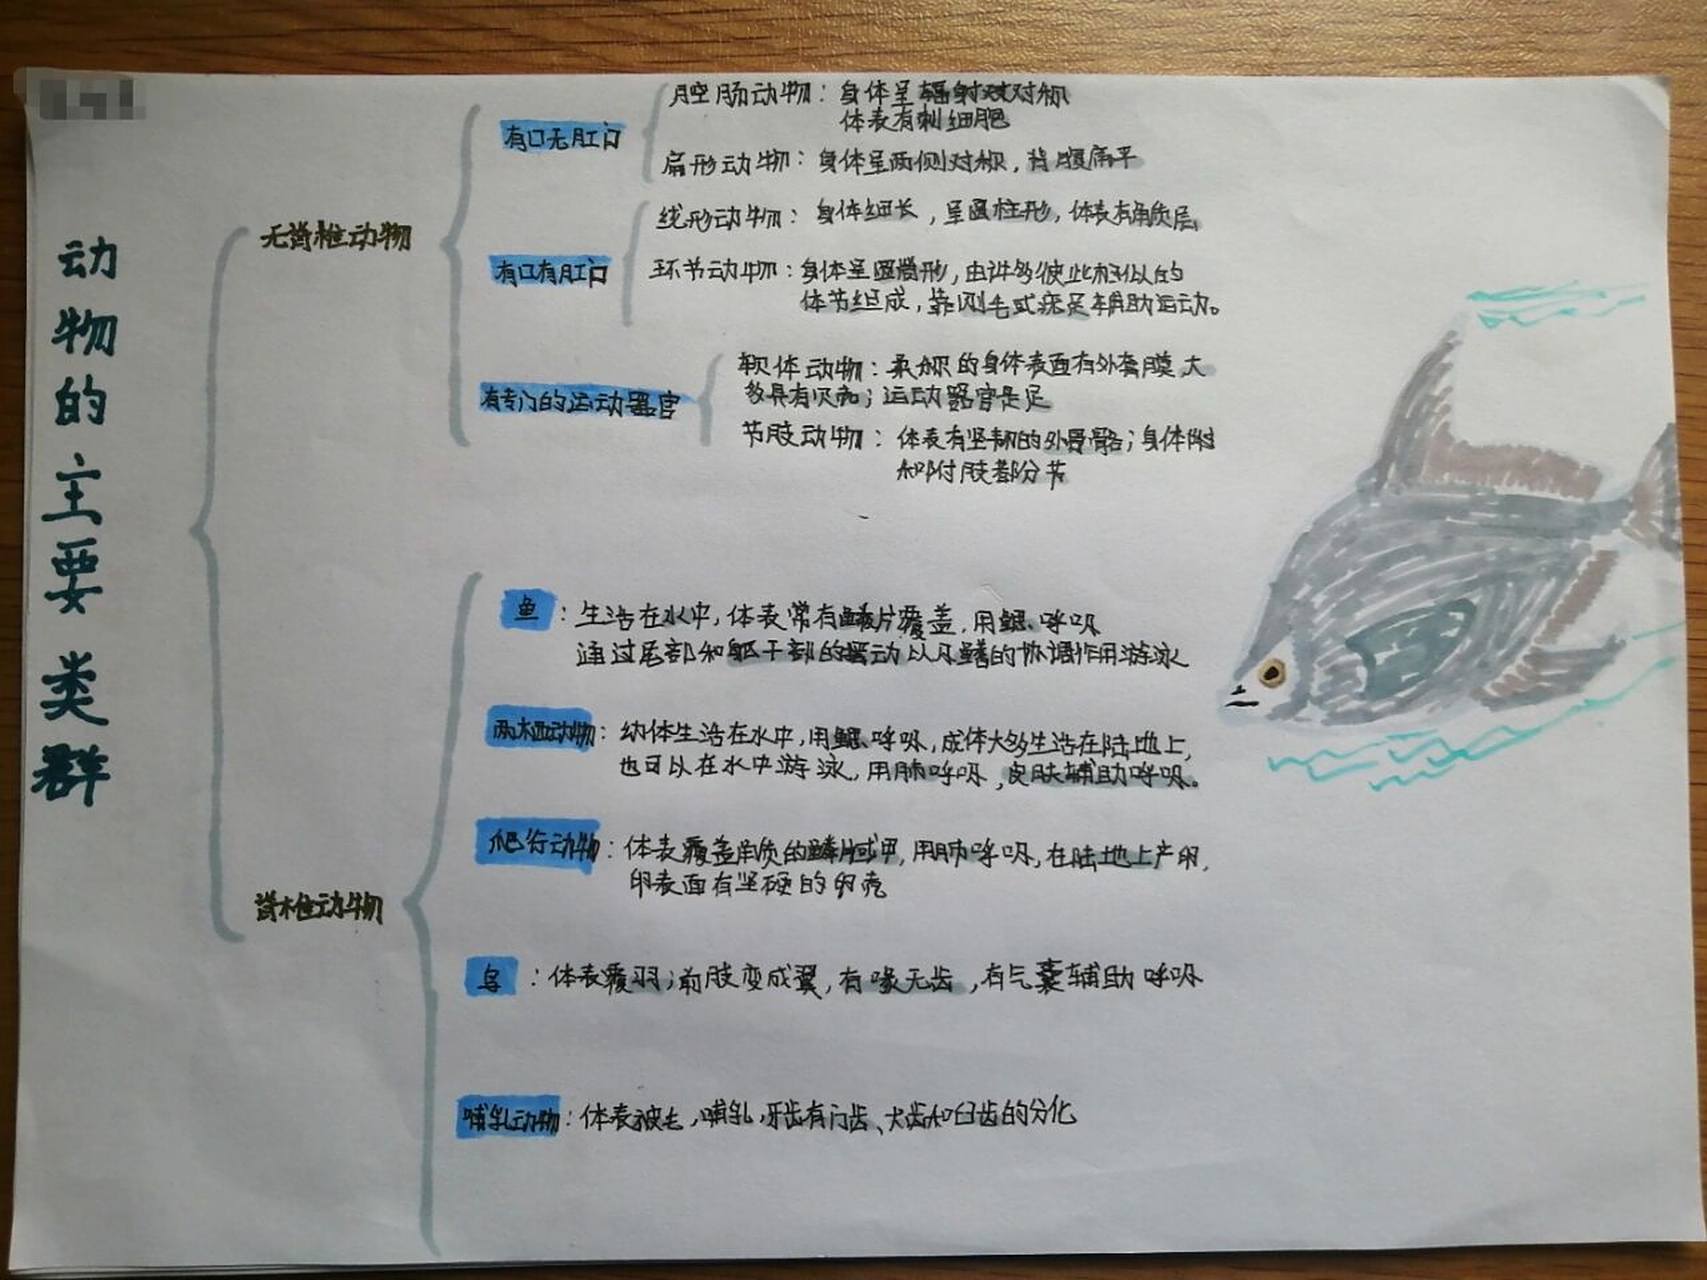 动物的主要类群
无脊椎动物
有口无肛门
腔肠动物：身体呈辐射对称
体表有刺细胞
扁形动物：身体呈两侧对称，背腹扁平
有口有肛门
线形动物：身体细长，呈圆柱形，体表有角质层
环节动物：身体呈圆筒形，由许多彼此相似的
体节组成，靠刚毛或疣足辅助运动。
有专门的运动器官
软体动物：柔软的身体表面有外套膜，大
多具有贝壳；运动器官是足
节肢动物：体表有坚韧的外骨骼；身体
和附肢都分节
脊椎动物
鱼：生活在水中，体表常有鳞片覆盖，用鳃呼吸
通过尾部和躯干部的摆动以及鳍的协调作用游泳
两栖动物：幼体生活在水中，用鳃呼吸，成体大多生活在陆地上，
也可以在水中游泳，用肺呼吸，皮肤辅助呼吸。
爬行动物：体表覆盖角质的鳞片或甲，用肺呼吸，在陆地上产卵，
卵表面有坚硬的卵壳
鸟：体表覆羽；前肢变成翼，有喙无齿，有气囊辅助呼吸
哺乳动物：体表被毛，哺乳，牙齿有门齿、犬齿和臼齿的分化